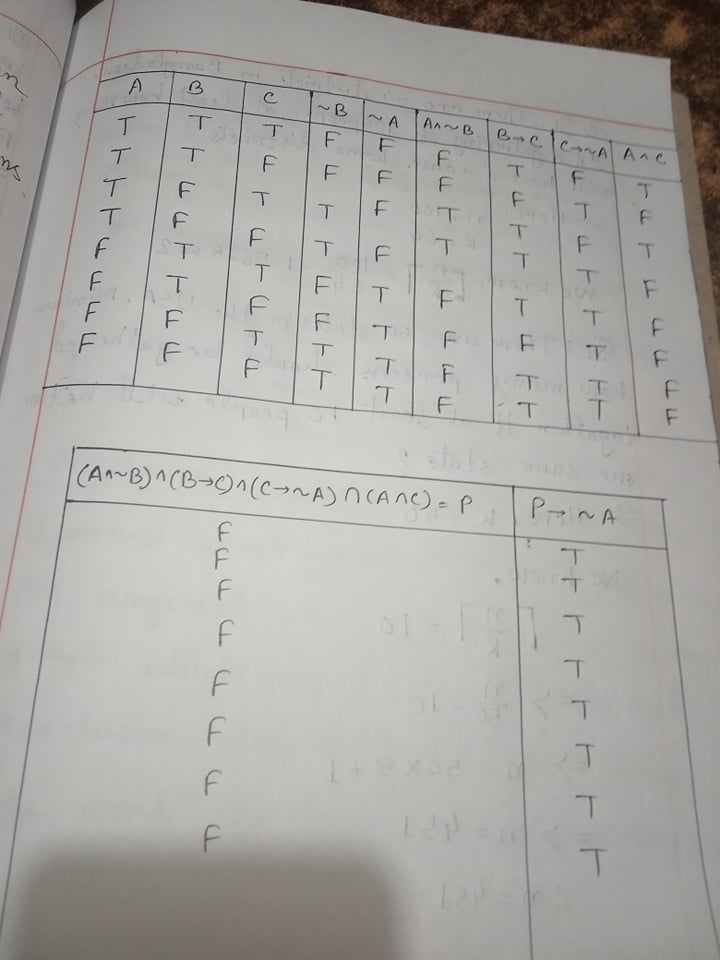 A B C ~B ~A A∧~B B→C C→~A A∧C
T T T F F F T F T
T T F F F F F T F
T F T T F T T F T
T F F T F T T T F
F T T F T F T T F
F T F F T F F T F
F F T T T F T T F
F F F T T F T T F
(A∧~B)∧(B→C)∧(C→~A)∩(A∧C)=P P→~A
F T
F T
F T
F T
F T
F T
F T
F T